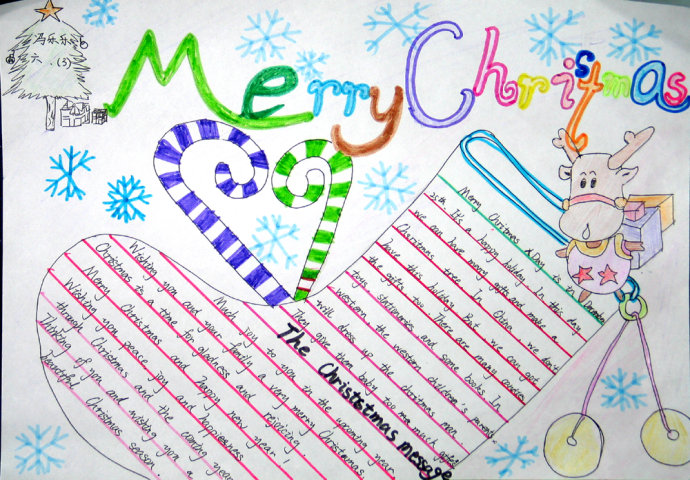 冯乐乐
六.(3)
Merry Christmas
The Christstmas message
Wishing you and your family a very merry Christmas
Much joy to you in the upcoming year
Christmas is a time for gladness and rejoicing.
Merry Christmas and Happy new year!
Wishing you peace joy and happieness
through Christmas and the coming year
Thinking of you and wishing you a
beautiful Christmas season.
Merry Christmas Day is the December
25th It's a happy holiday In this day
we can have many gifts and make a
Christmas tree In China we don't
have this holiday But we can get
the gifts too There are many
toys stationeries and some books In
western the western children's parents
will dress up the christmas man
Then give them baby too much gifts